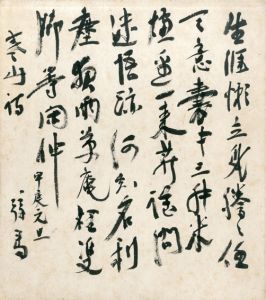 生涯懶立身騰々任
天真囊中三升米
爐邊一束薪誰問
迷悟跡何知名利
塵夜雨草庵裡雙
脚等閒伸 甲辰元旦
詩